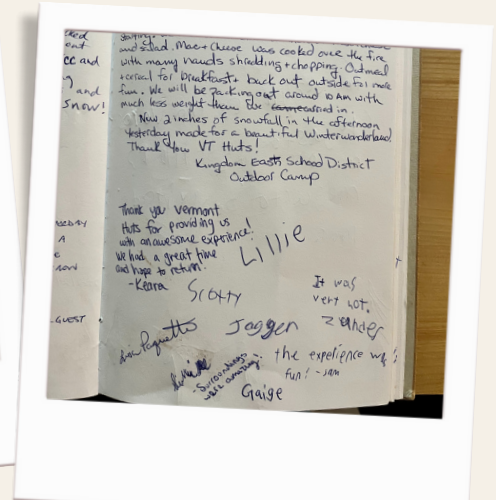 and salad. Mac + Cheese was cooked over the fire
with many hands shredding + chopping. Oatmeal
+ cereal for breakfast + back out outside for more
fun. We will be packing out around 10 Am with
much less weight than we carried in.
New 2 inches of snowfall in the afternoon
yesterday made for a beautiful Winter wonderland.
Thank You VT Huts!
Kingdom East School District
Outdoor Camp
Thank you Vermont
Huts for providing us
with an awesome exprience!
We had a great time
and hope to return!
-Keara
Lillie
Scotty
It was
very hot.
Zander
Jaggen
Paquette
the experience was
fun! -sam
-Surroundings
were amazing!
Gaige
and
snow!
A
-GUEST